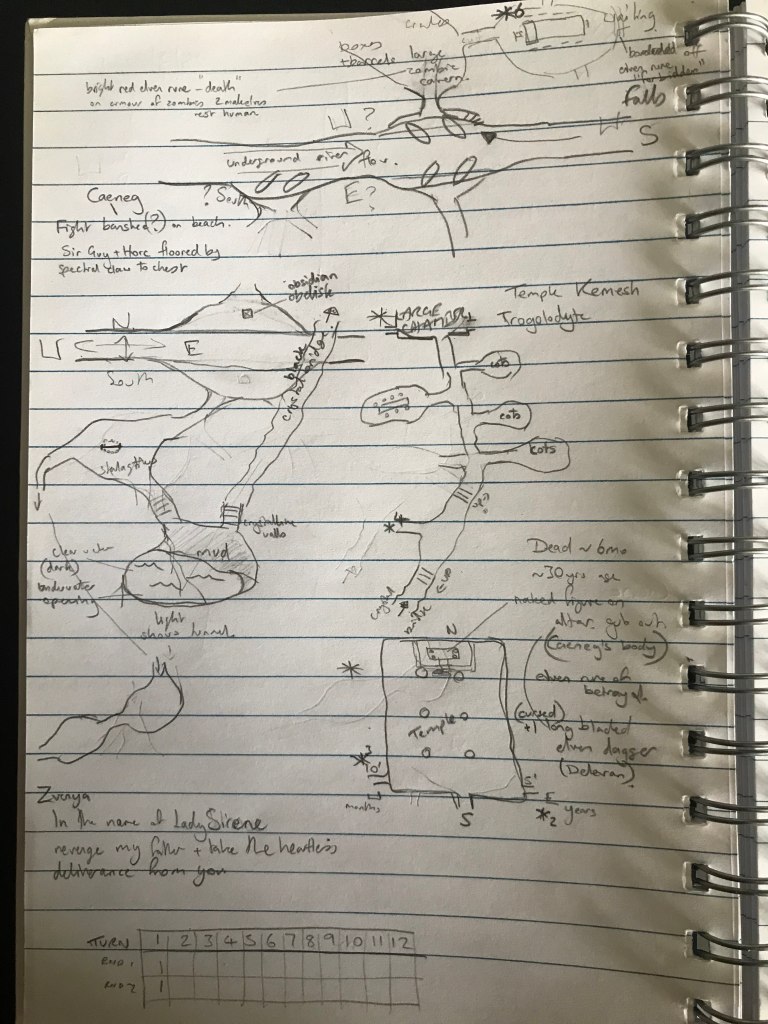 *6
boxes
+ barrels large
zombie
cavern
boarded off
elven rune
"forbidden"
bright red elven rune - "death"
on armour of zombies
rest human
Falls
?
S
underground river flow.
? South
E?
Caeneg
Fight banshee(?) on beach.
Sir Guy + Horc floored by
spectral claw to chest
obsidian
obelisk
N
E
South
black
crystal bridge
* LARGE
CHAMBER
Temple Kemesh
Trogolodyte
cots
cots
cots
stalagtites
crystalline
walls
mud
clear water
(dark)
underwater
opening
light
shows tunnel.
up
*4
crystal
bridge
Dead ~ 6mo
~30yrs age
naked figure on
altar. gub out.
(Caeneg's body)
elven rune of
betrayal.
(cursed)
+1 long bladed
elven dagger
(Deleran)
N
*
Temple
*3
10'
months
S
5'
E
*2 years
Zvenya
In the name of Lady Sirene
revenge my father + take the heartless
deliverance from you
TURN 1 2 3 4 5 6 7 8 9 10 11 12
RND 1 1
RND 2 1